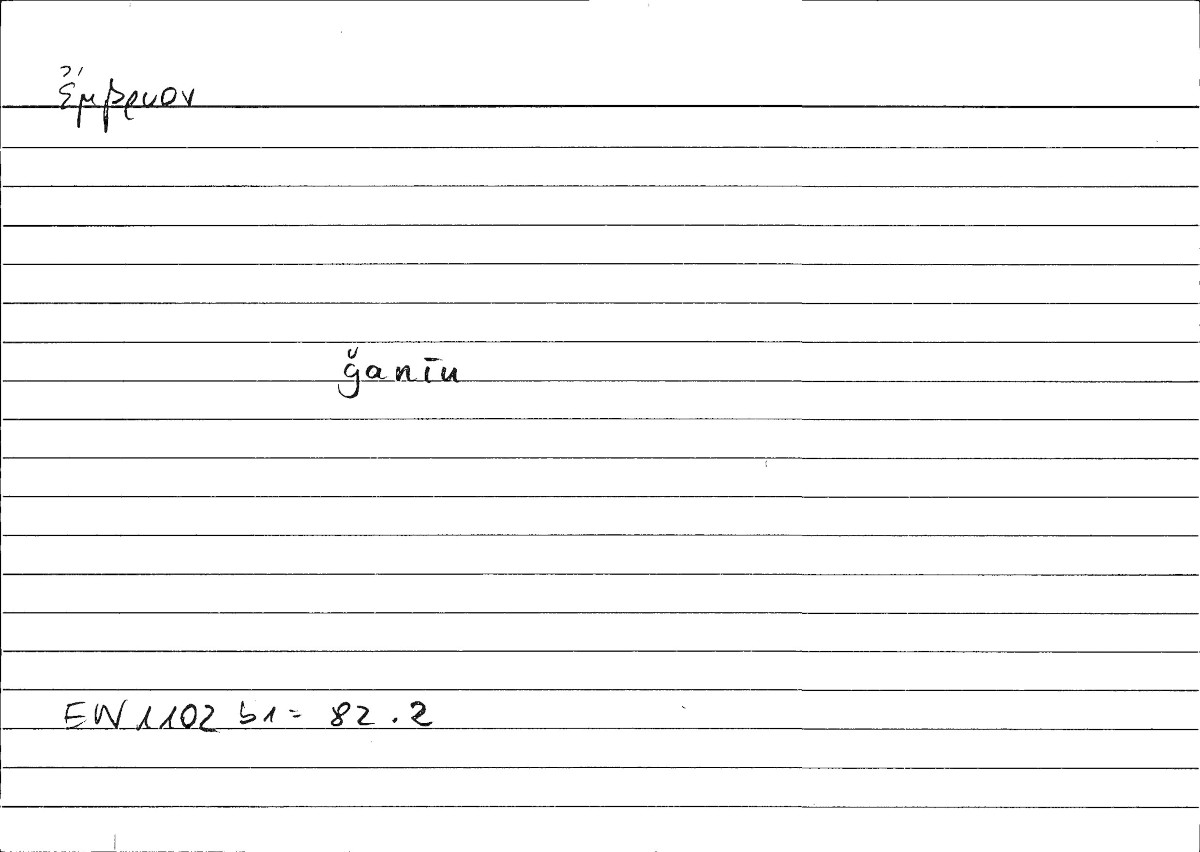 ἔμβρυον
ǧanīu
EN 1102 b1 = 82.2